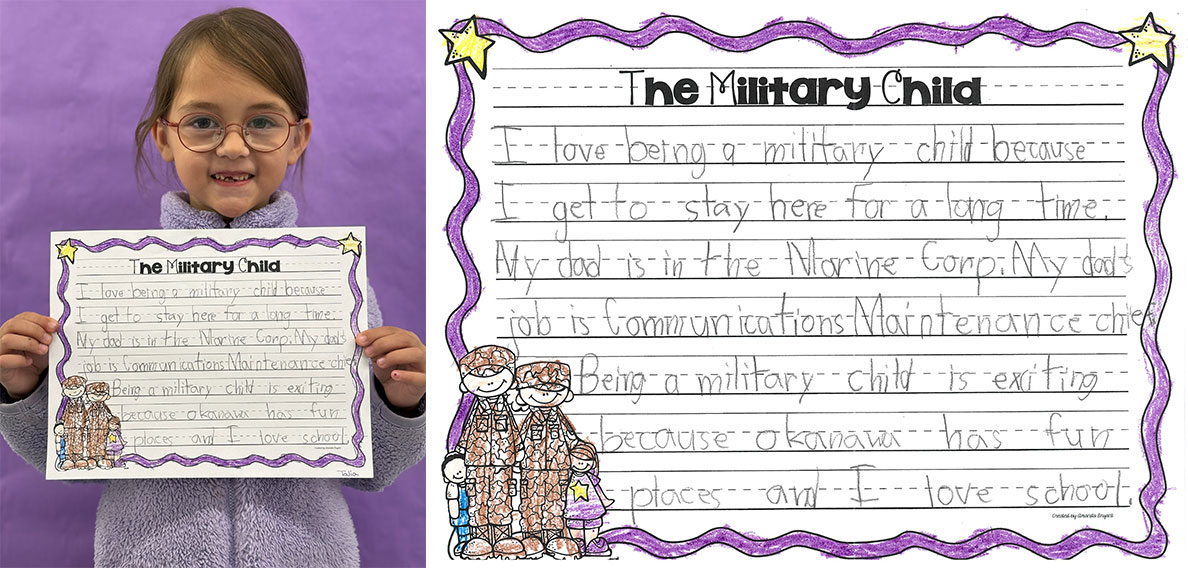 The Military Child
I love being a military child because
I get to stay here for a long time.
My dad is in the Marine Corp. My dad's
job is Communications Maintenance chi
Being a military child is exiting
because okanawa has fun
places and I love school.
The Military Child
I love being a military child because
I get to stay here for a long time.
My dad is in the Marine Corp. My dad's
job is Communications Maintenance chief
Being a military child is exiting
because okanawa has fun
places and I love school.
Created by Amanda Bryant